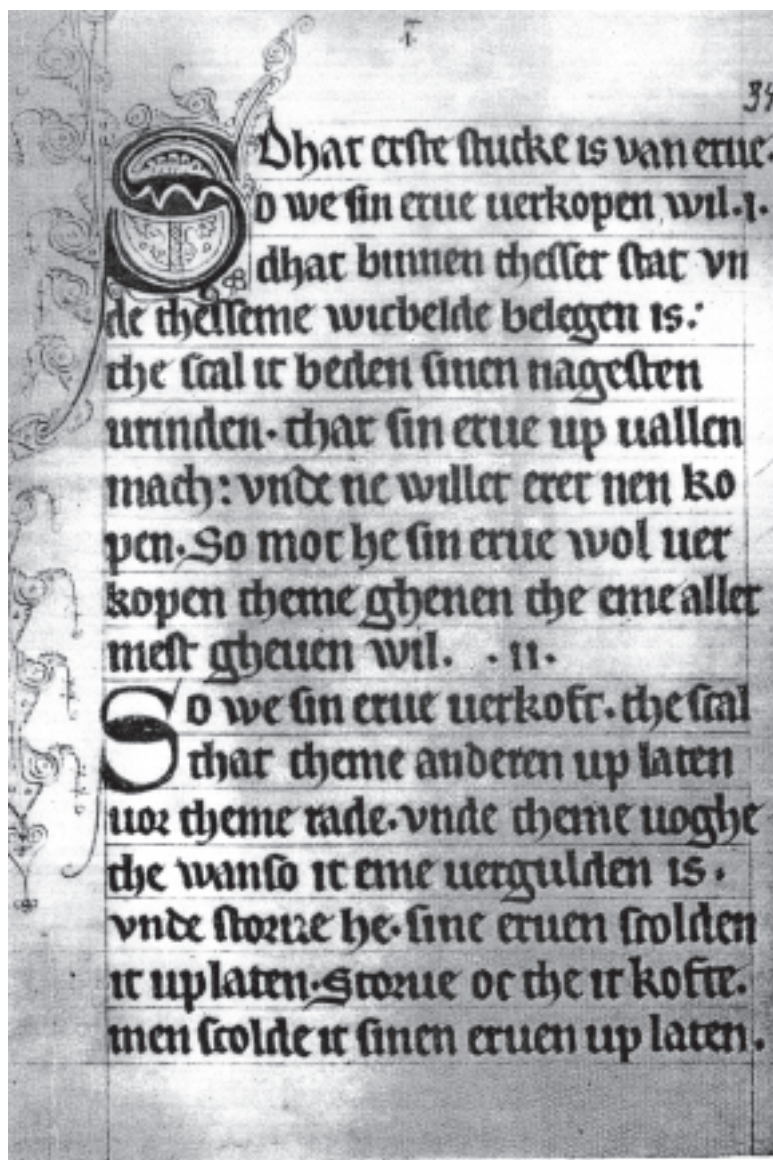 I.
34
Dhat erste stucke is van erue.
So we sin erue uerkopen wil.I.
dhat binnen thesser stat vn
de thesseme wicbelde belegen is:
the scal it beden sinen nagesten
urinden. that sin erue up uallen
mach: vnde ne willet erer nen ko
pen. So mot he sin erue wol uer
kopen theme ghenen the eme aller
mest gheuen wil. .II.
So we sin erue uerkoft. the scal
that theme anderen up laten
uor theme rade. vnde theme uoghe
the wanso it eme uergulden is.
vnde storue he. sine eruen scolden
it uplaten. Storue oc the it kofte.
men scolde it sinen eruen up laten.